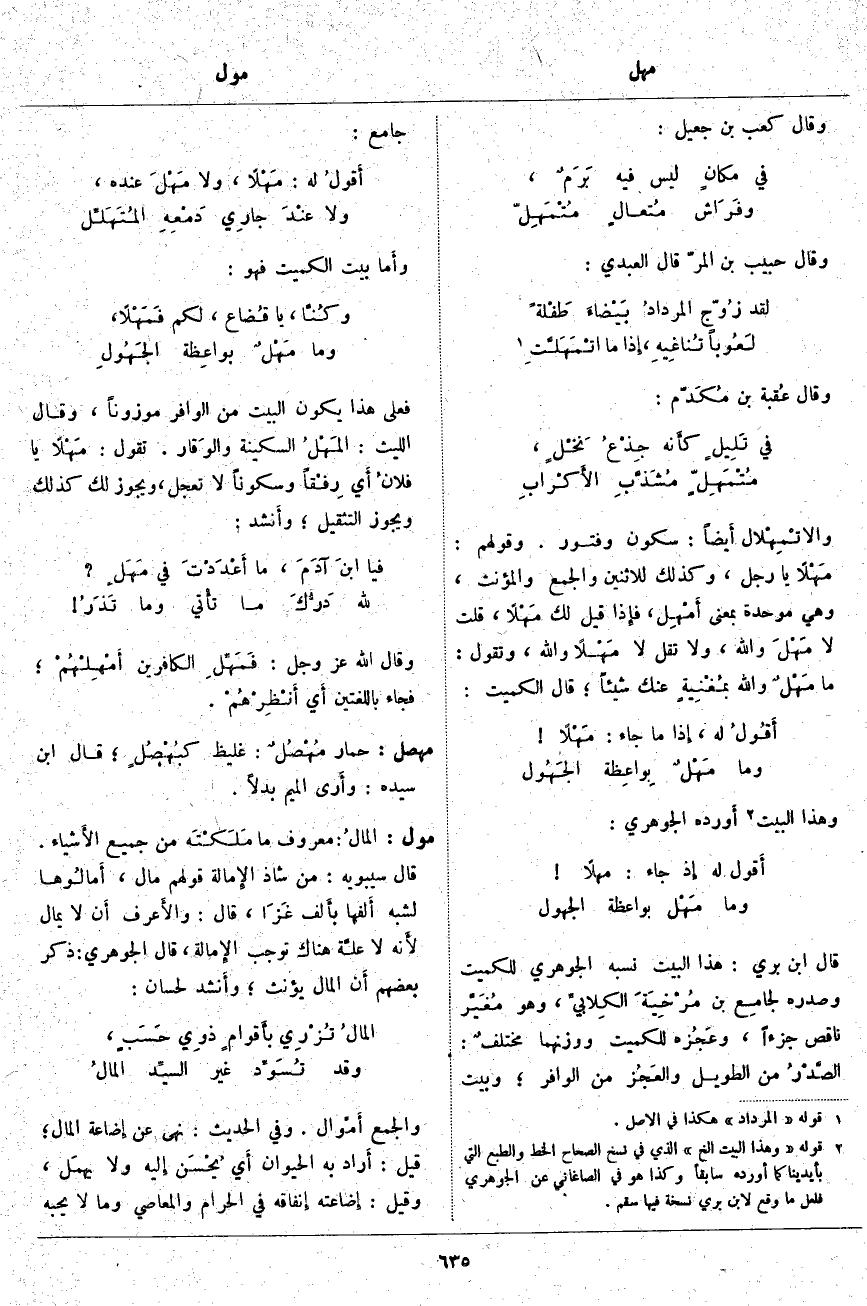 مهل
مول
وقال كعب بن جعيل :
في مكانٍ ليس فيه بَرَمٌ ،
وفَرَاش مُتعالٍ مُتْمَهِلّ
وقال حبيب بن المرّ قال العبدي :
لقد زُوّج المردادُ بَيْضاءَ طَفْلةً
لَعُوباً تُناغِيهِ ، إذا ما اتْمَهَلَّتِ ١
وقال عُقبة بن مُكَدّم :
في تَلِيلٍ كأنه جِذْعُ نَخْلٍ ،
مُتْمَهِلٍّ مُشَذَّبِ الأَكْرابِ
والاتْمِهْلال أيضاً : سكون وفتور . وقولهم :
مَهْلًا يا رجل ، وكذلك للاثنين والجمع والمؤنث ،
وهي موحدة بمعنى أَمْهِل ، فإذا قيل لك مَهْلًا ، قلت
لا مَهْلَ والله ، ولا تقل لا مَهْلًا والله ، وتقول :
ما مَهْلٌ والله بمُغْنيةٍ عنك شيئاً ؛ قال الكميت :
أَقُولُ له ، إذا ما جاء : مَهْلًا !
وما مَهْلٌ بِواعِظة الجَهُول
وهذا البيت ٢ أورده الجوهري :
أَقول له إذ جاء : مهلًا !
وما مَهْل بواعظة الجهول
قال ابن بري : هذا البيت نسبه الجوهري للكميت
وصدره لجامع بن مُرْخِيَةَ الكِلابيّ ، وهو مُغَيَّر
ناقص جزءاً ، وعَجُزه للكميت ووزنهما مختلفٌ :
الصَّدْرُ من الطويل والعَجُز من الوافر ؛ وبيت
١ قوله « المرداد » هكذا في الاصل .
٢ قوله « وهذا البيت الخ » الذي في نسخ الصحاح الخط والطبع التي
بأيدينا كما أورده سابقاً وكذا هو في الصاغاني عن الجوهري
فلعل ما وقع لابن بري نسخة فيها سقم .
جامع :
أَقولُ له : مَهْلًا ، ولا مَهْلَ عنده ،
ولا عنْدَ جارِي دَمْعِهِ المُتَهَلِّل
وأما بيت الكميت فهو :
وكُنَّا ، يا قُضاع ، لكم فَمَهْلًا،
وما مَهْلٌ بواعِظة الجَهُولِ
فعلى هذا يكون البيت من الوافر موزوناً ، وقال
الليث : المَهْلُ السكينة والوَقار . تقول : مَهْلًا يا
فلانُ أي رِفْقاً وسكوناً لا تعجل ، ويجوز لك كذلك
ويجوز التثقيل ؛ وأنشد :
فيا ابنَ آدَمَ ، ما أَعْدَدْتَ في مَهَلٍ ؟
لله دَرُّكَ ما تأْتي وما تَذَرُ!
وقال الله عز وجل : فَمَهِّلِ الكافرين أَمْهِلْهُمْ ؛
فجاء باللغتين أي أَنْظِرْهُمْ .
مهصل : حمار مُهْصُلٌ : غليظ كبُهْصُلٍ ؛ قال ابن
سيده : وأَرى الميم بدلاً .
مول : المالُ : معروف ما مَلَكْتَه من جميع الأشياء .
قال سيبويه : من شاذ الإمالة قولهم مال ، أَمالُوها
لشبه ألفها بألف غَزَا ، قال : والأعرف أن لا يمال
لأنه لا علَّة هناك توجب الإمالة ، قال الجوهري : ذكر
بعضهم أن المال يؤنث ؛ وأنشد لحسان :
المالُ تُزْرِي بأقوامٍ ذوِي حَسَبٍ ،
وقد تُسَوِّد غير السيِّد المالُ
والجمع أَمْوال . وفي الحديث : نهى عن إضاعة المال ؛
قيل : أراد به الحيوان أي يُحْسَن إليه ولا يهمَل ،
وقيل : إضاعته إنفاقه في الحرام والمعاصي وما لا يحبه
٦٣٥